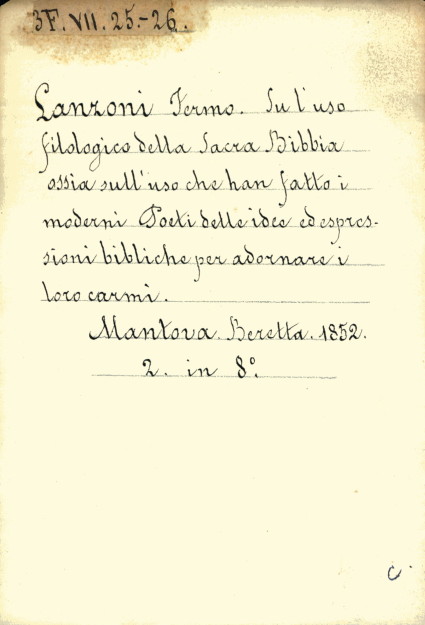 3F. VII. 25.-26.
Lanzoni Fermo. Su l'uso
filologico della Sacra Bibbia
ossia sull'uso che han fatto i
moderni Poeti delle idee ed espres-
sioni bibliche per adornare i
loro carmi.
Mantova. Beretta. 1852.
2. in 8º.
C.